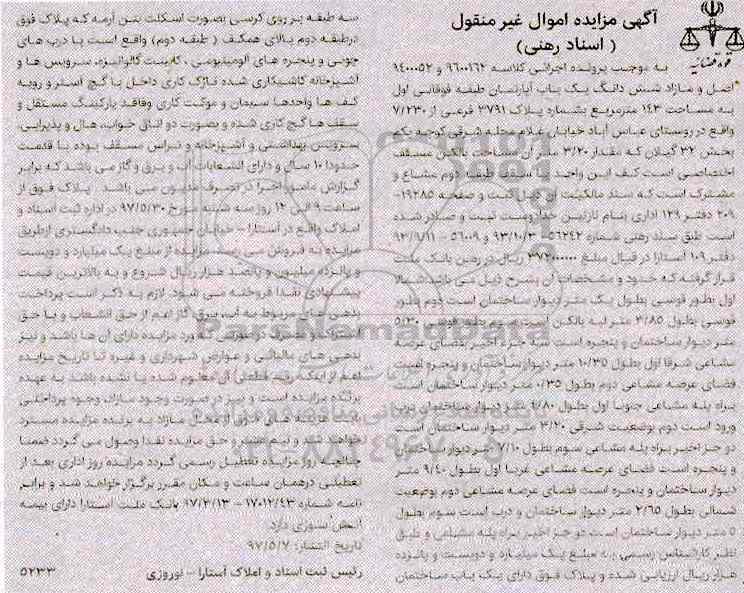 آگهی مزایده اموال غیر منقول
( اسناد رهنی)
قوه قضائیه
به موجب پرونده اجرائی کلاسه ۹۶۰۰۱۶۲ و ۹۴۰۰۰۵۲
اصل و مازاد شش دانگ یک باب آپارتمان طبقه فوقانی اول
به مساحت ۱۴۳ مترمربع بشماره پلاک ۳۷۹۱ فرعی از ۷/۲۳۰
واقع در روستای عباس آباد خیابان غلام محله شرقی کوچه یکم
بخش ۳۲ گیلان که مقدار ۳/۲۰ متر آن مساحت بالکن مسقف
اختصاصی است کف این واحد با سقف طبقه دوم مشاع و
مشترک است که سند مالکیت آن ذیل ثبت و صفحه ۱۹۲۸۵-
۲۰۹ دفتر ۱۲۹ اداری بنام نازنین خدادوست ثبت و صادر شده
است طبق سند رهنی شماره ۵۶۲۴۲-۹۳/۱۰/۳ و ۵۶۰۰۹ - ۹۳/۹/۱۱
دفتر ۱۰۹ آستارا در قبال مبلغ ریال در رهن بانک ملت
قرار گرفته که حدود و مشخصات آن بشرح ذیل می باشد شمالا
اول بطور قوسی بطول یک متر دیوار ساختمان است دوم بطور
قوسی بطول ۳/۸۵ متر لبه بالکن است سوم بطور قوسی ۵/۳۰
متر دیوار ساختمان و پنجره است سه جزء اخیر بفضای عرصه
مشاعی شرقا اول بطول ۱۰/۳۵ متر دیوار ساختمان و پنجره است
فضای عرصه مشاعی دوم بطول ۰/۳۵ متر دیوار ساختمان است
براه پله مشاعی جنوبا اول بطول ۱/۸۰ متر دیوار ساختمان درب
ورود است دوم بوضعیت شرقی ۳/۲۰ متر دیوار ساختمان است
دو جز اخیر براه پله مشاعی سوم بطول ۷/۱۰ متر دیوار ساختمان
و پنجره است فضای عرصه مشاعی غربا اول بطول ۹/۴۰ متر
دیوار ساختمان و پنجره است فضای عرصه مشاعی دوم بوضعیت
شمالی بطول ۲/۶۵ متر دیوار ساختمان و درب است سوم بطول
۵ متر دیوار ساختمان است دو جز اخیر براه پله مشاعی و طبق
نظر کارشناس رسمی به مبلغ یک میلیارد و دویست و پانزده
هزار ریال ارزیابی شده و پلاک فوق دارای یک باب ساختمان
سه طبقه بر روی کرسی بصورت اسکلت بتن آرمه که پلاک فوق
درطبقه دوم بالای همکف ( طبقه دوم) واقع است با درب های
چوبی و پنجره های آلومینیومی ، کابینت گالوانیزه، سرویس ها و
آشپزخانه کاشیکاری شده نازک کاری داخل با گچ آستر و رویه
کف ها واحدها سیمان و موکت کاری وفاقد پارکینگ مستقل و
سقف ها گچ کاری شده و بصورت دو اتاق خواب، هال و پذیرایی،
سرویس بهداشتی و آشپزخانه و تراس مسقف بوده با قدمت
حدودا ۱۰ سال و دارای انشعابات آب و برق و گاز می باشد که برابر
گزارش مامور اجرا در تصرف مدیون می باشد . پلاک فوق از
ساعت ۹ الی ۱۲ روز سه شنبه مورخ ۹۷/۵/۳۰ در اداره ثبت اسناد و
املاک واقع در آستارا - خیابان جمهوری جنب دادگستری ازطریق
مزایده به فروش می رسد. مزایده از مبلغ یک میلیارد و دویست
و پانزده میلیون و پانصد هزار ریال شروع و به بالاترین قیمت
پیشنهادی نقدا فروخته می شود. لازم به ذکر است پرداخت
بدهی های مربوط به آب، برق، گاز اعم از حق انشعاب و یا حق
اشتراک و مصرف درصورتی که مورد مزایده دارای آن ها باشد و نیز
بدهی های مالیاتی و عوارض شهرداری و غیره تا تاریخ مزایده
اعم از اینکه رقم قطعی آن معلوم شده یا نشده باشد به عهده
برنده مزایده است و نیز در صورت وجود مازاد، وجوه پرداختی
بابت هزینه های فوق از محل مازاد به برنده مزایده مسترد
خواهد شد و نیم عشر و حق مزایده نقدا وصول می گردد ضمنا
چنانچه روز مزایده تعطیل رسمی گردد مزایده روز اداری بعد از
تعطیلی درهمان ساعت و مکان مقرر برگزار خواهد شد و برابر
نامه شماره ۱۷۰۱۲/۴۳ - ۹۷/۲/۱۳ بانک ملت آستارا دارای بیمه
آتش سوزی دارد.
تاریخ انتشار: ۹۷/۵/۷
رئیس ثبت اسناد و املاک آستارا - نوروزی
۵۲۳۳
ParsNamadData